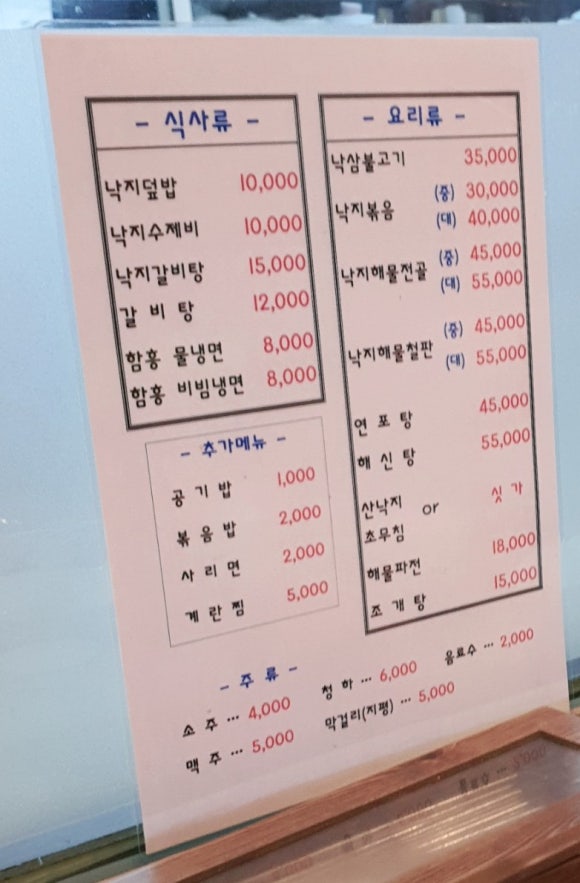 - 식사류 -
낙지덮밥 10,000
낙지수제비 10,000
낙지갈비탕 15,000
갈 비 탕 12,000
함흥 물냉면 8,000
함흥 비빔냉면 8,000
- 추가메뉴 -
공 기 밥 1,000
볶 음 밥 2,000
사 리 면 2,000
계 란 찜 5,000
- 요리류 -
낙삼불고기 35,000
낙지볶음 (중) 30,000
(대) 40,000
낙지해물전골 (중) 45,000
(대) 55,000
낙지해물철판 (중) 45,000
(대) 55,000
연 포 탕 45,000
해 신 탕 55,000
산낙지 or 싯 가
초무침
해물파전 18,000
조 개 탕 15,000
- 주 류 -
소 주 ··· 4,000
맥 주 ··· 5,000
청 하 ··· 6,000
막걸리(지평) ··· 5,000
음료수 ··· 2,000